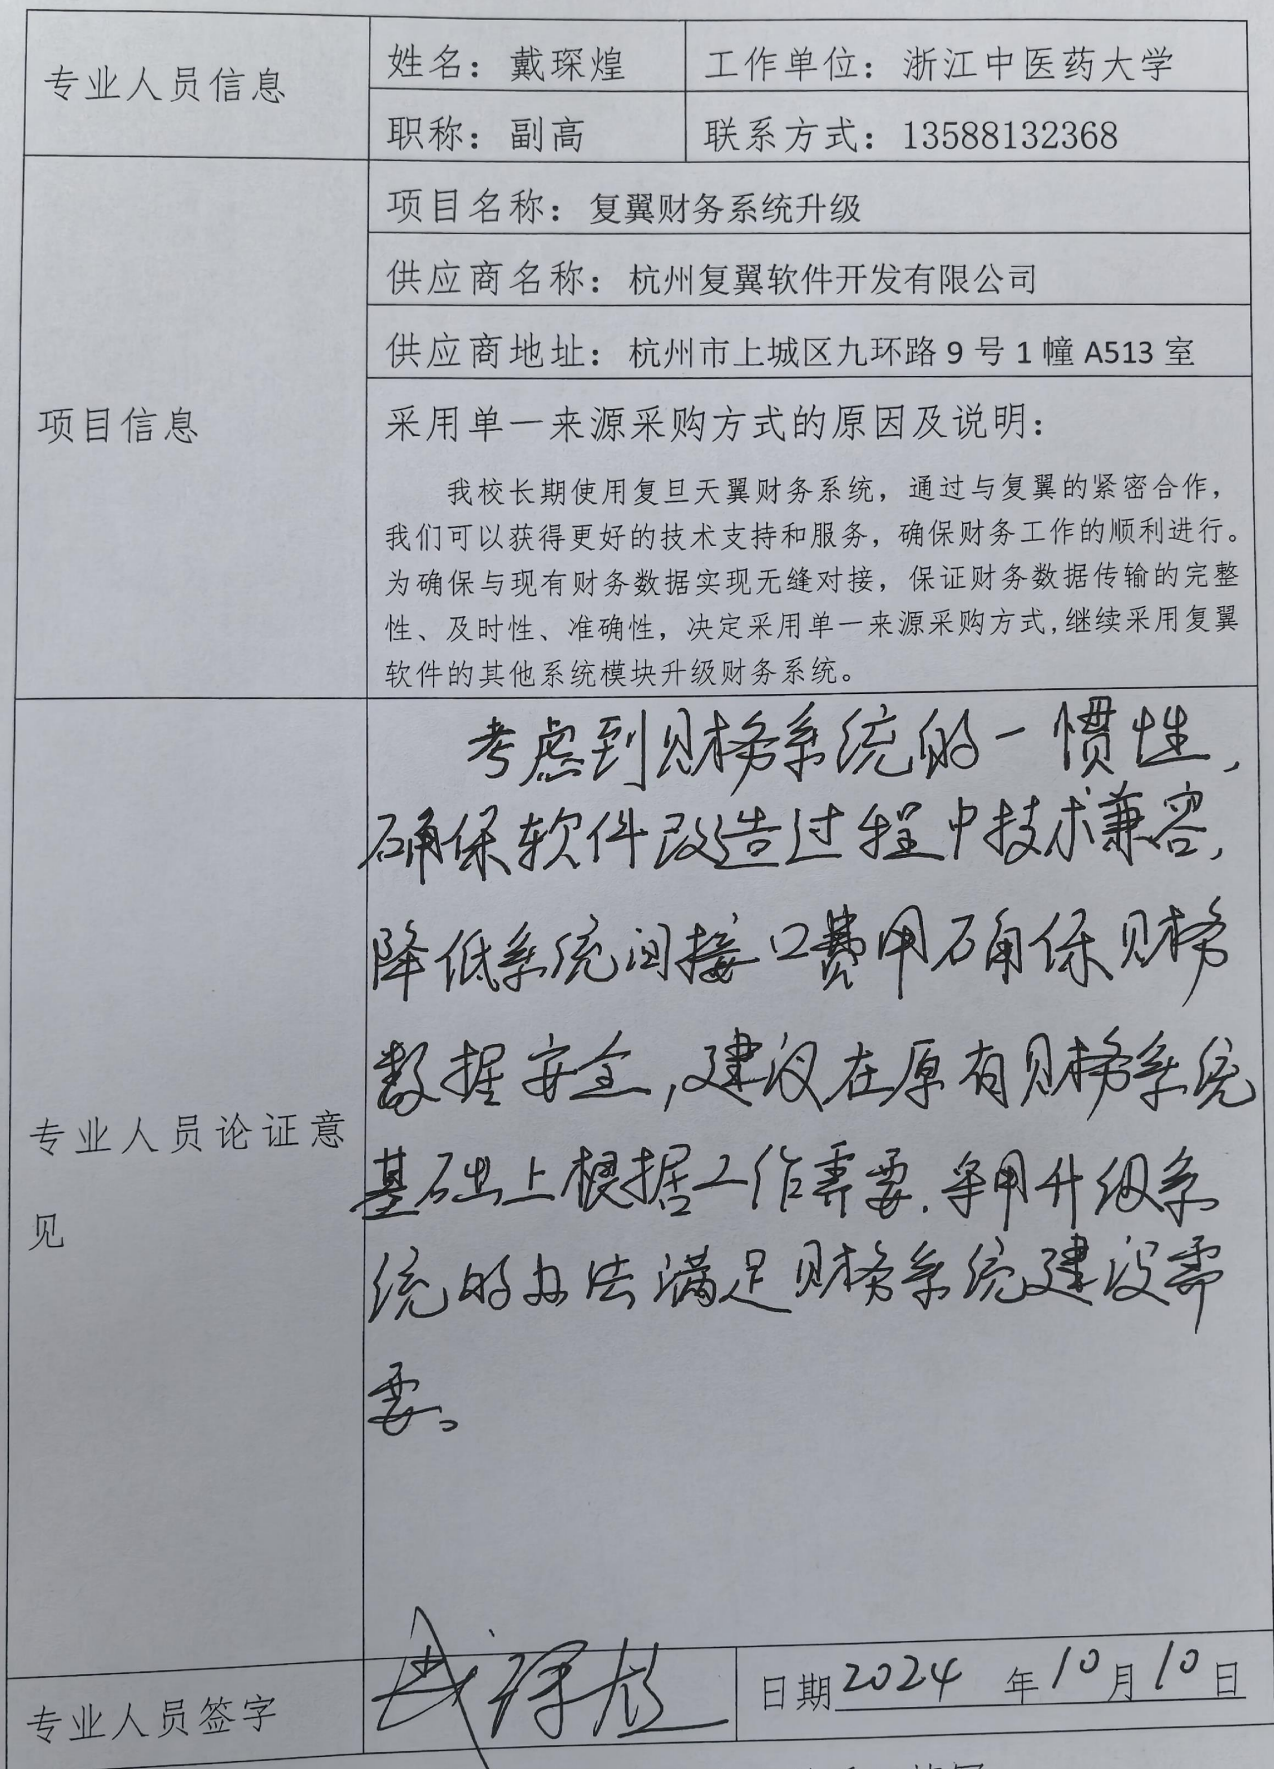 专业人员信息
姓名：戴琛煌
工作单位：浙江中医药大学
职称：副高
联系方式：13588132368
项目信息
项目名称：复翼财务系统升级
供应商名称：杭州复翼软件开发有限公司
供应商地址：杭州市上城区九环路9号1幢A513室
采用单一来源采购方式的原因及说明：
我校长期使用复旦天翼财务系统，通过与复翼的紧密合作，
我们可以获得更好的技术支持和服务，确保财务工作的顺利进行。
为确保与现有财务数据实现无缝对接，保证财务数据传输的完整
性、及时性、准确性，决定采用单一来源采购方式,继续采用复翼
软件的其他系统模块升级财务系统。
专业人员论证意
见
考虑到财务系统的一惯性，
确保软件改造过程中技术兼容，
降低系统间接口费用确保财务
数据安全，建议在原有财务系统
基础上根据工作需要，采用升级系
统的办法满足财务系统建设需
要。
专业人员签字
戴琛煌
日期2024 年10月10日